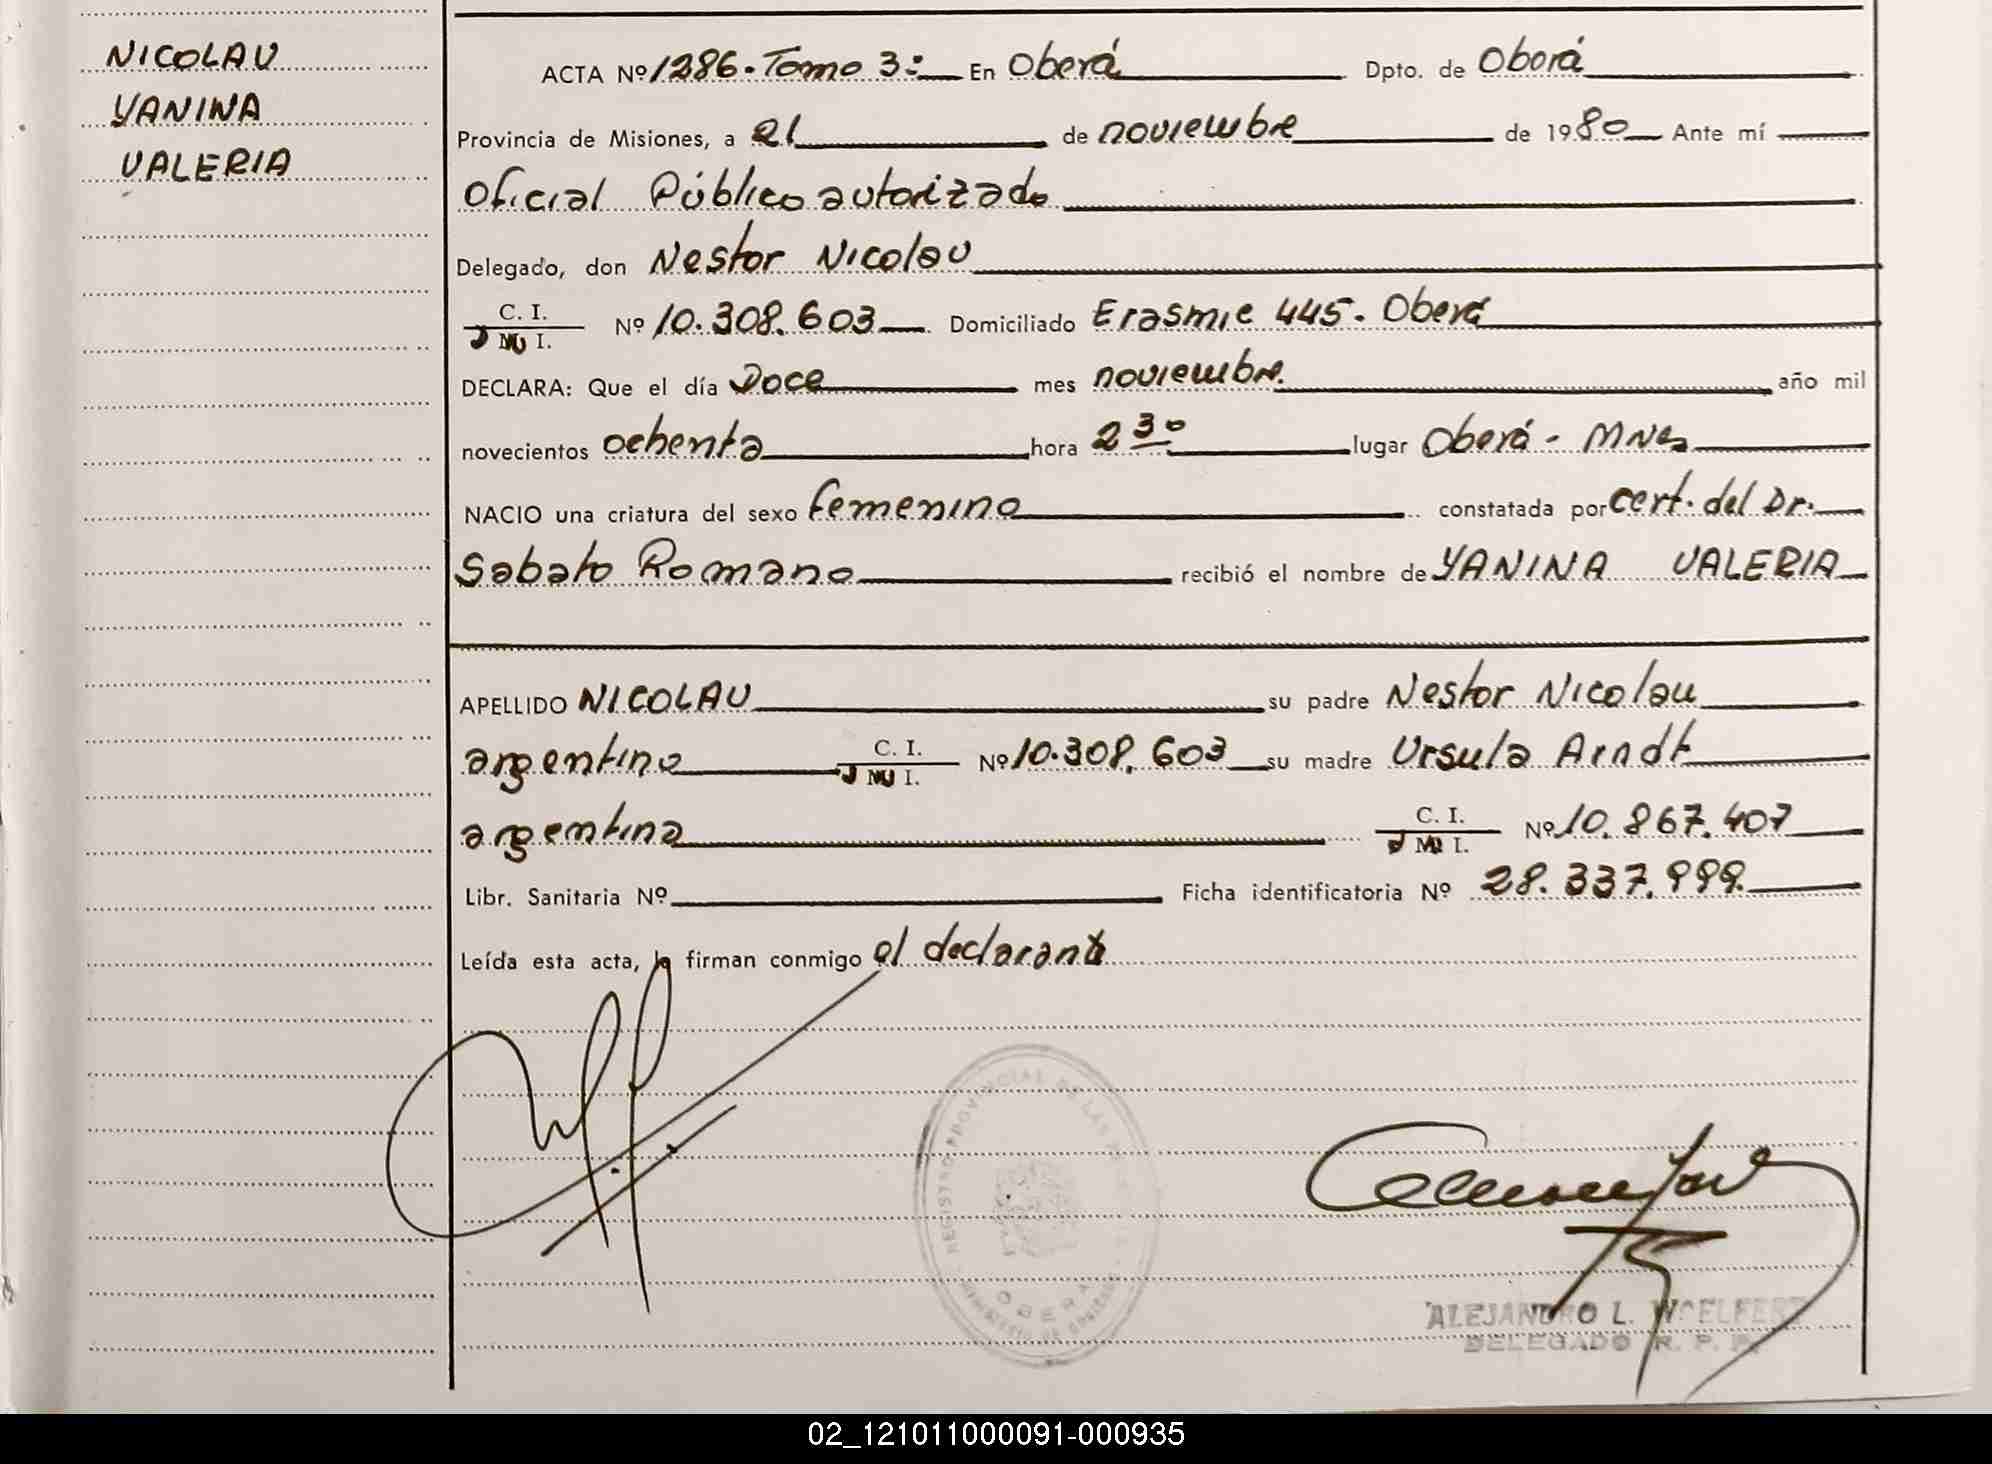 NICOLAU
YANINA
VALERIA
ACTA Nº 1286. Tomo 3: En Oberá Dpto. de Oberá
Provincia de Misiones, a 21 de noviembre de 1980 Ante mí
Oficial Público autorizado
Delegado, don Nestor Nicolau
C. I.
D N I. Nº 10.308.603 Domiciliado Erasmie 445. Oberá
DECLARA: Que el día Doce mes noviembre. año mil
novecientos ochenta hora 2 30 lugar Oberá - Mnes
NACIO una criatura del sexo femenino constatada por cert. del Dr.
Sabato Romano recibió el nombre de YANINA VALERIA
APELLIDO NICOLAU su padre Nestor Nicolau
argentino C. I. D N I. Nº 10.308.603 su madre Ursula Arndt
argentina C. I. D N I. Nº 10.867.407
Libr. Sanitaria Nº Ficha identificatoria Nº 28.337.999.
Leída esta acta, la firman conmigo el declarante
REGISTRO PROVINCIAL DE LAS
OBERA
ALEJANDRO L. WOELFERT
DELEGADO R. P. P.
02_121011000091-000935